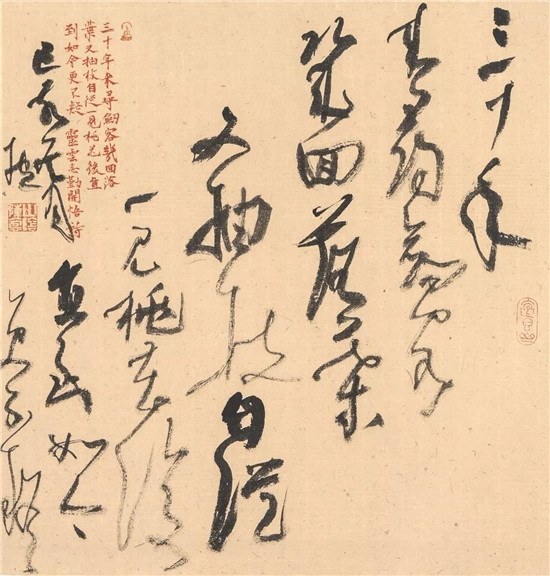 三十年
来尋劍客
幾回落葉
又抽枝自從
一見桃花後
直至如今
更不疑
己亥
三十年来尋劍客幾回落
葉又抽枝自從一見桃花後直
到如今更不疑 靈雲志勤開悟詩